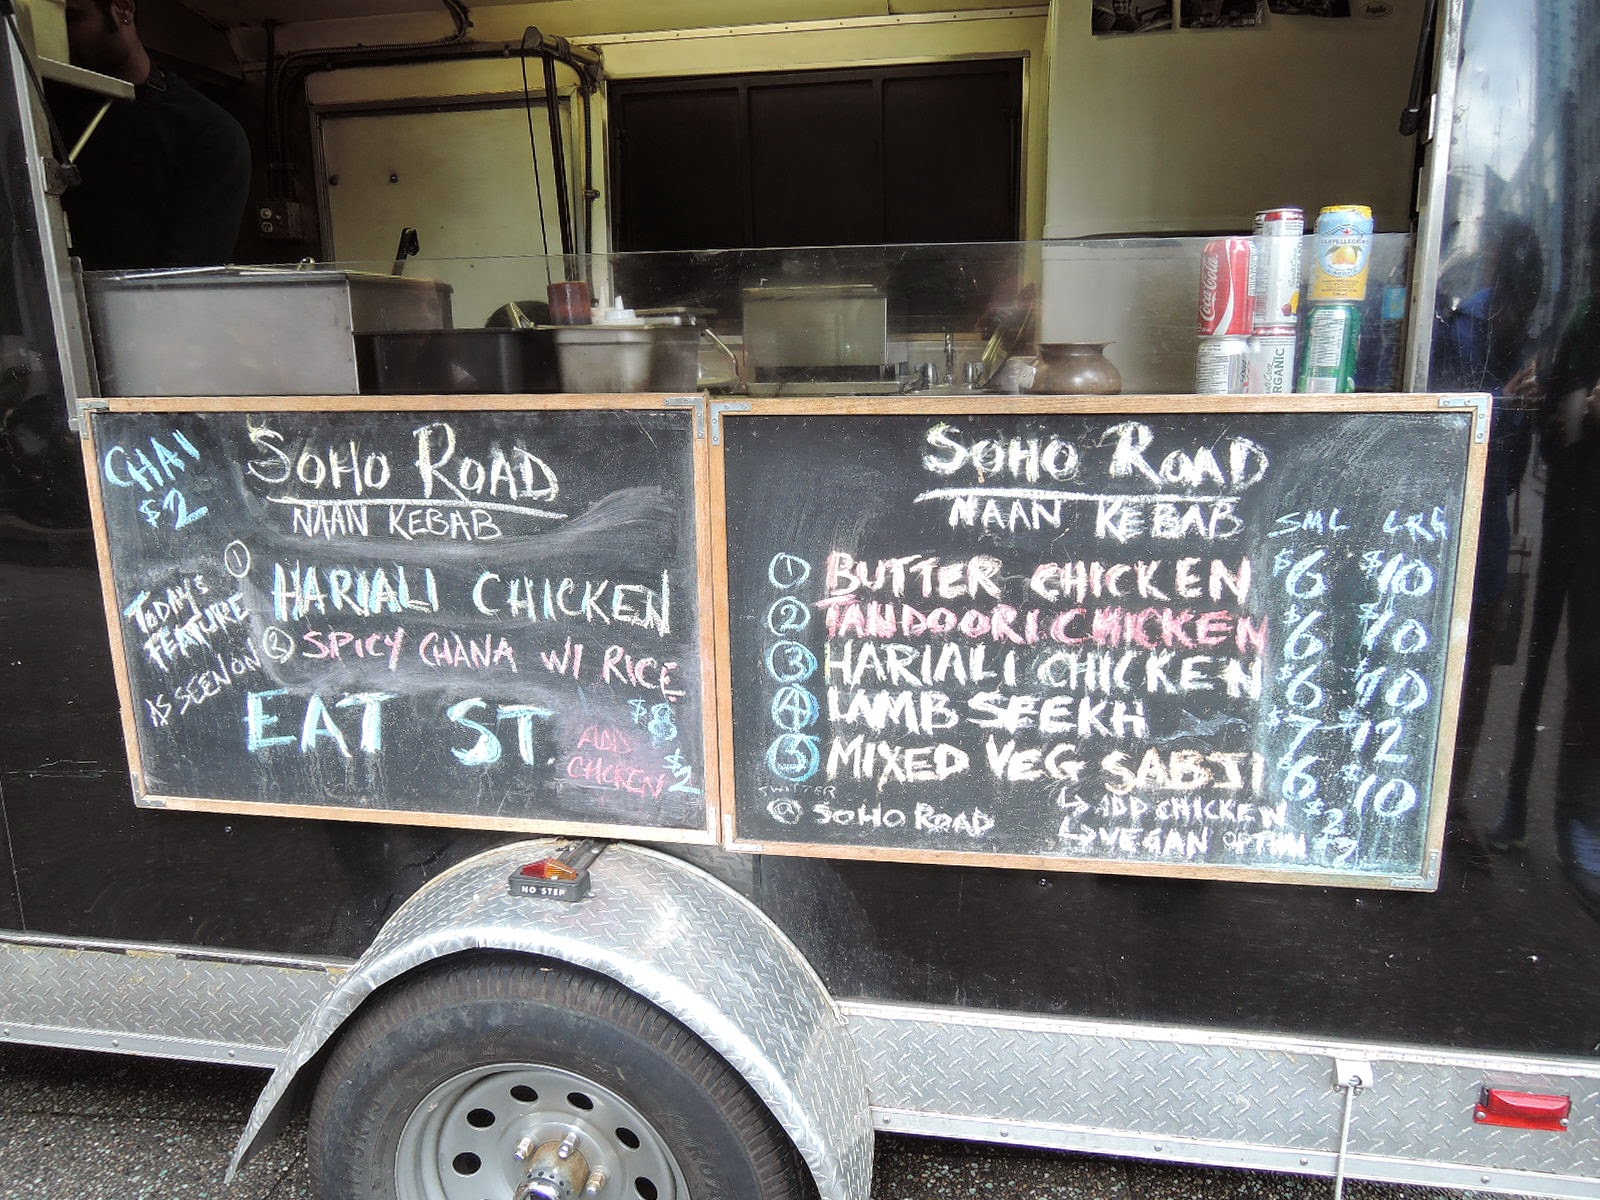 CHAI
$2
SOHO ROAD
NAAN KEBAB
TODAY'S
FEATURE
① HARIALI CHICKEN
② SPICY CHANA W/ RICE
$8
AS SEEN ON
EAT ST.
ADD
CHICKEN $2
SOHO ROAD
NAAN KEBAB
SML LRG
① BUTTER CHICKEN $6 $10
② TANDOORI CHICKEN $6 $10
③ HARIALI CHICKEN $6 $10
④ LAMB SEEKH $7 $12
⑤ MIXED VEG SABJI $6 $10
↳ ADD CHICKEN $2
↳ VEGAN OPTION
TWITTER
@ SOHO ROAD
Coca-Cola
SANPELLEGRINO
ORGANIC
NO STEP